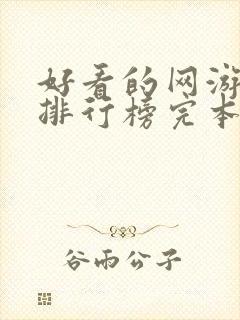 好看的网游
排行榜完本
谷雨公子